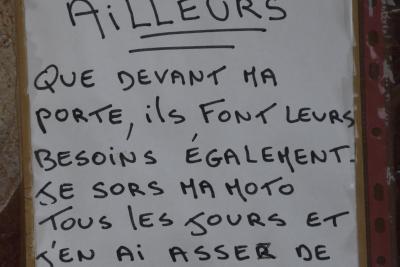 AILLEURS
QUE DEVANT MA
PORTE, ils FONT LEURS
BESOINS ÉGALEMENT.
JE SORS MA MOTO
TOUS LES JOURS ET
J'EN AI ASSEZ DE